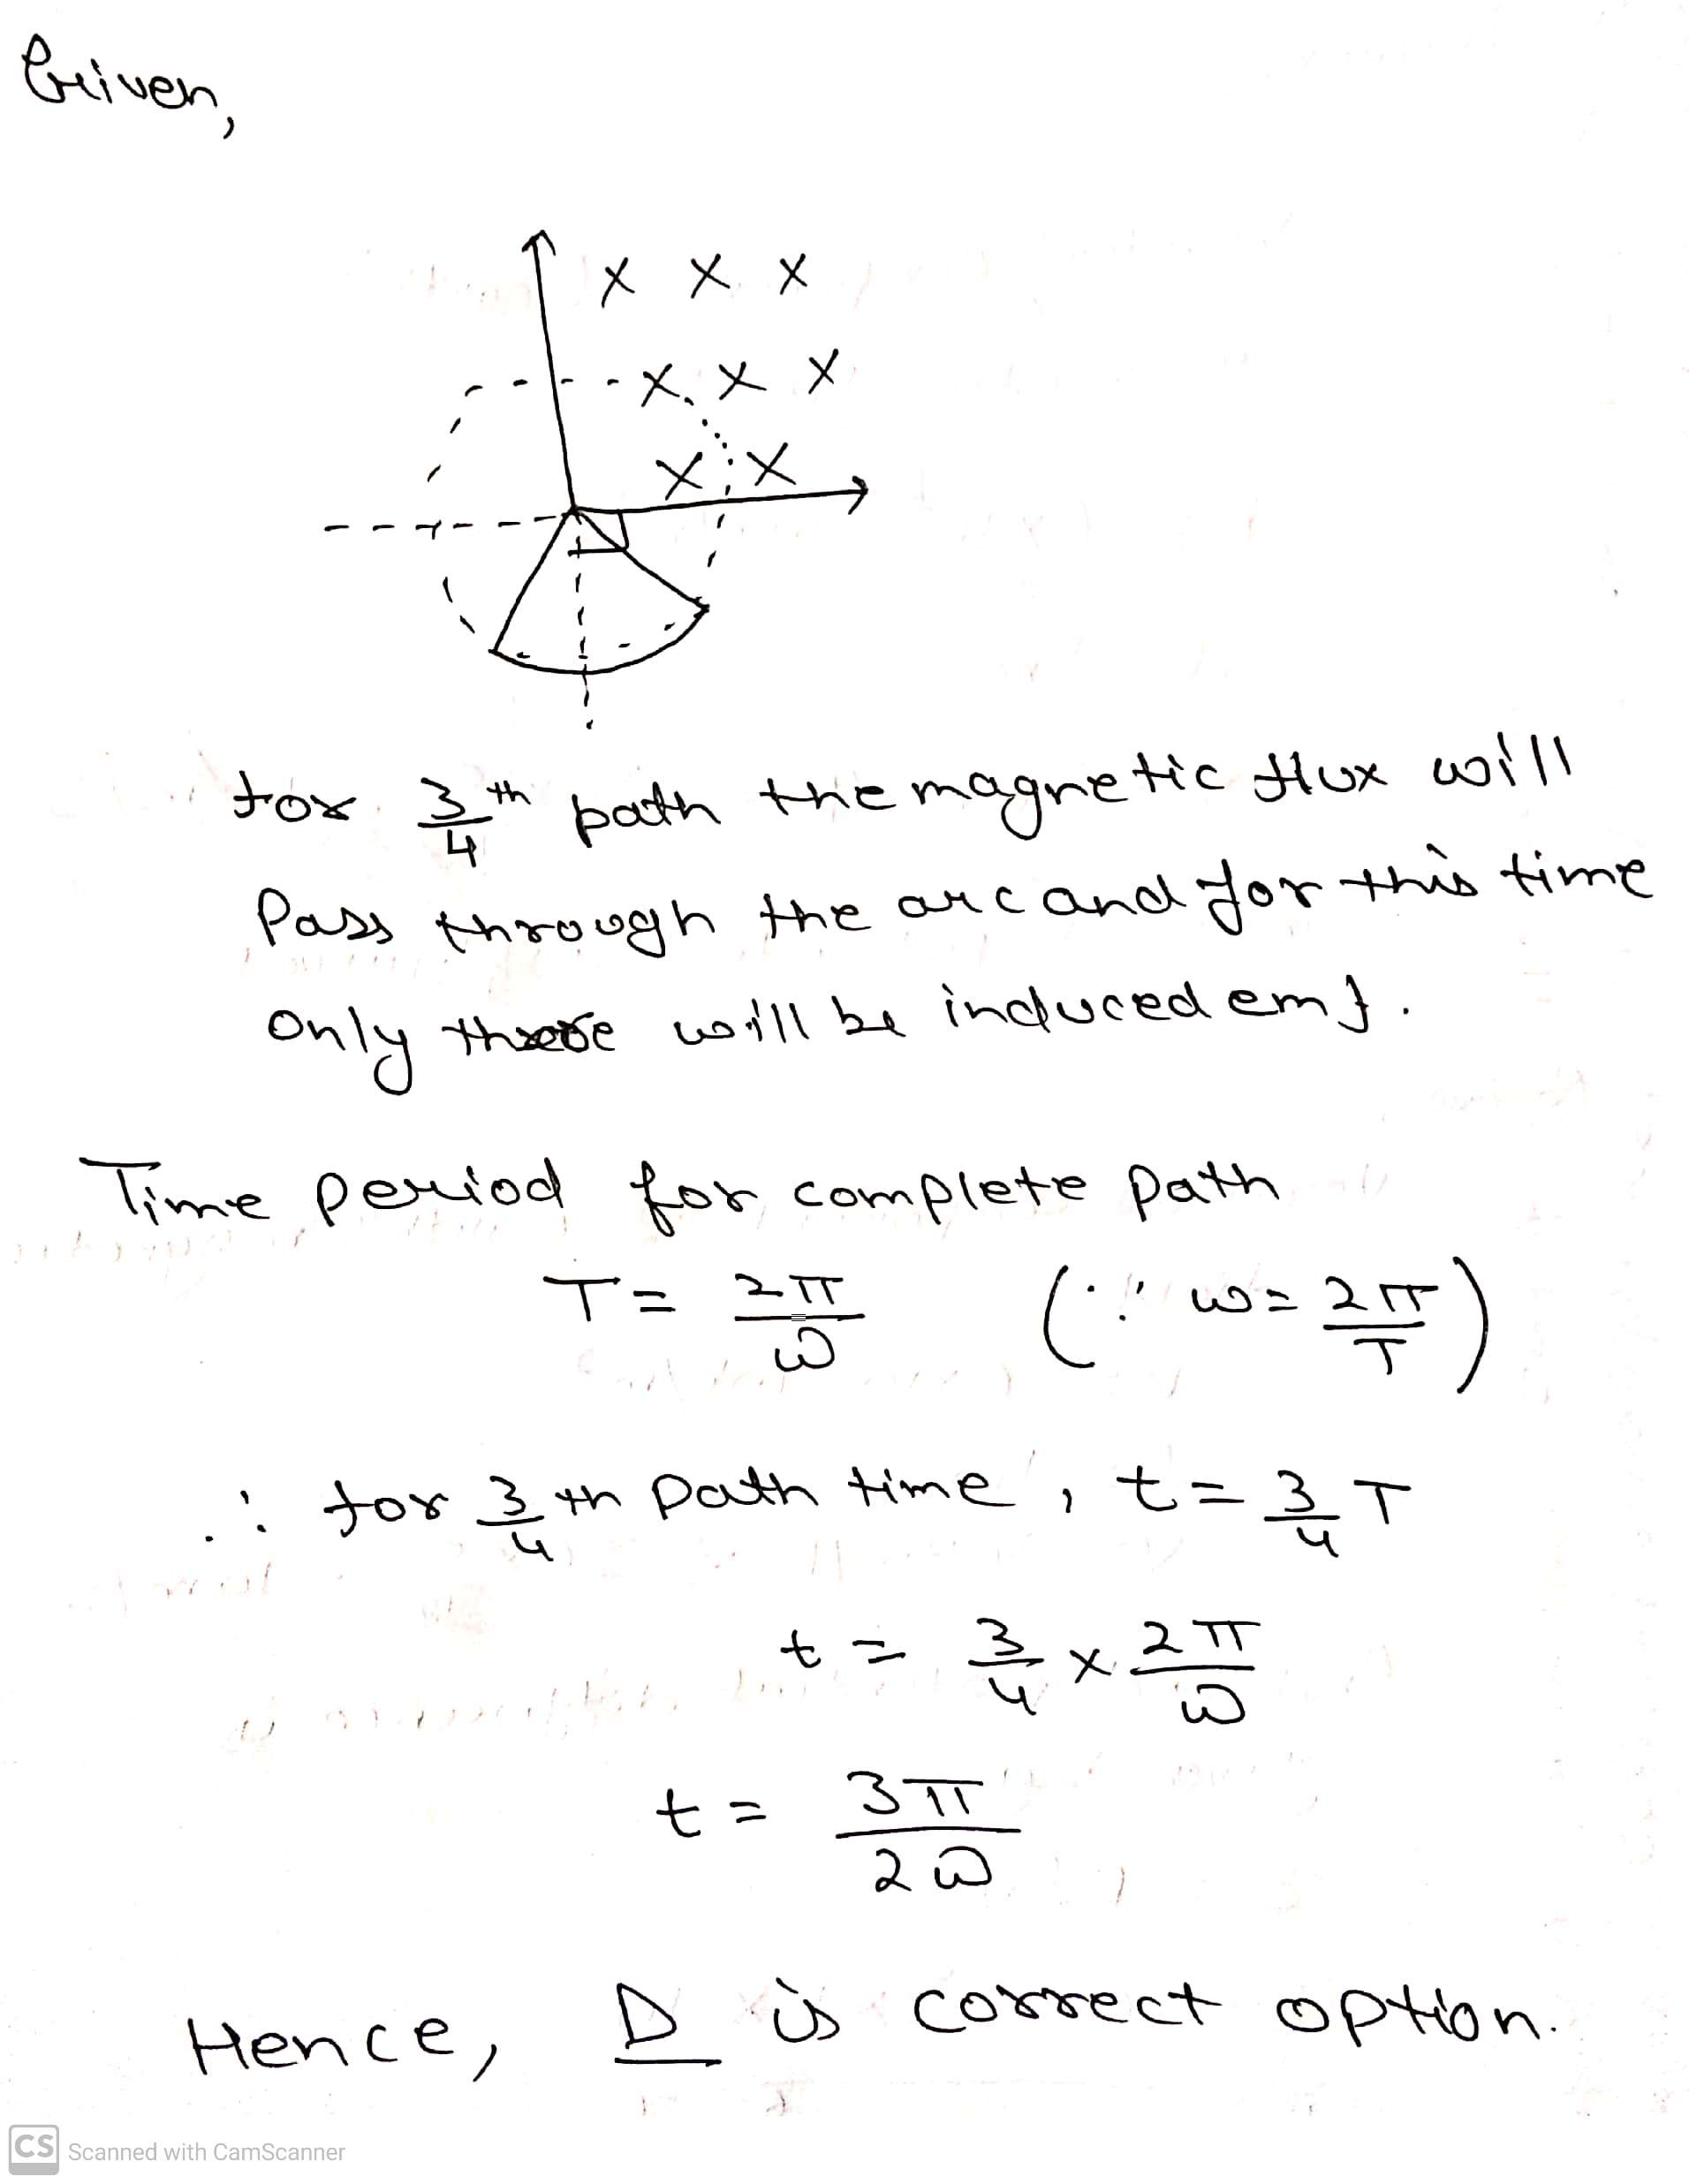 Given,
x x x
x x x
x x
for 3/4 th path the magnetic flux will
Pass through the arc and for this time
only there will be induced emf.
Time period for complete path
T = 2π/ω (∵ ω = 2π/T)
∴ for 3/4 th path time, t = 3/4 T
t = 3/4 × 2π/ω
t = 3π/2ω
Hence, D is correct option.
CS Scanned with CamScanner